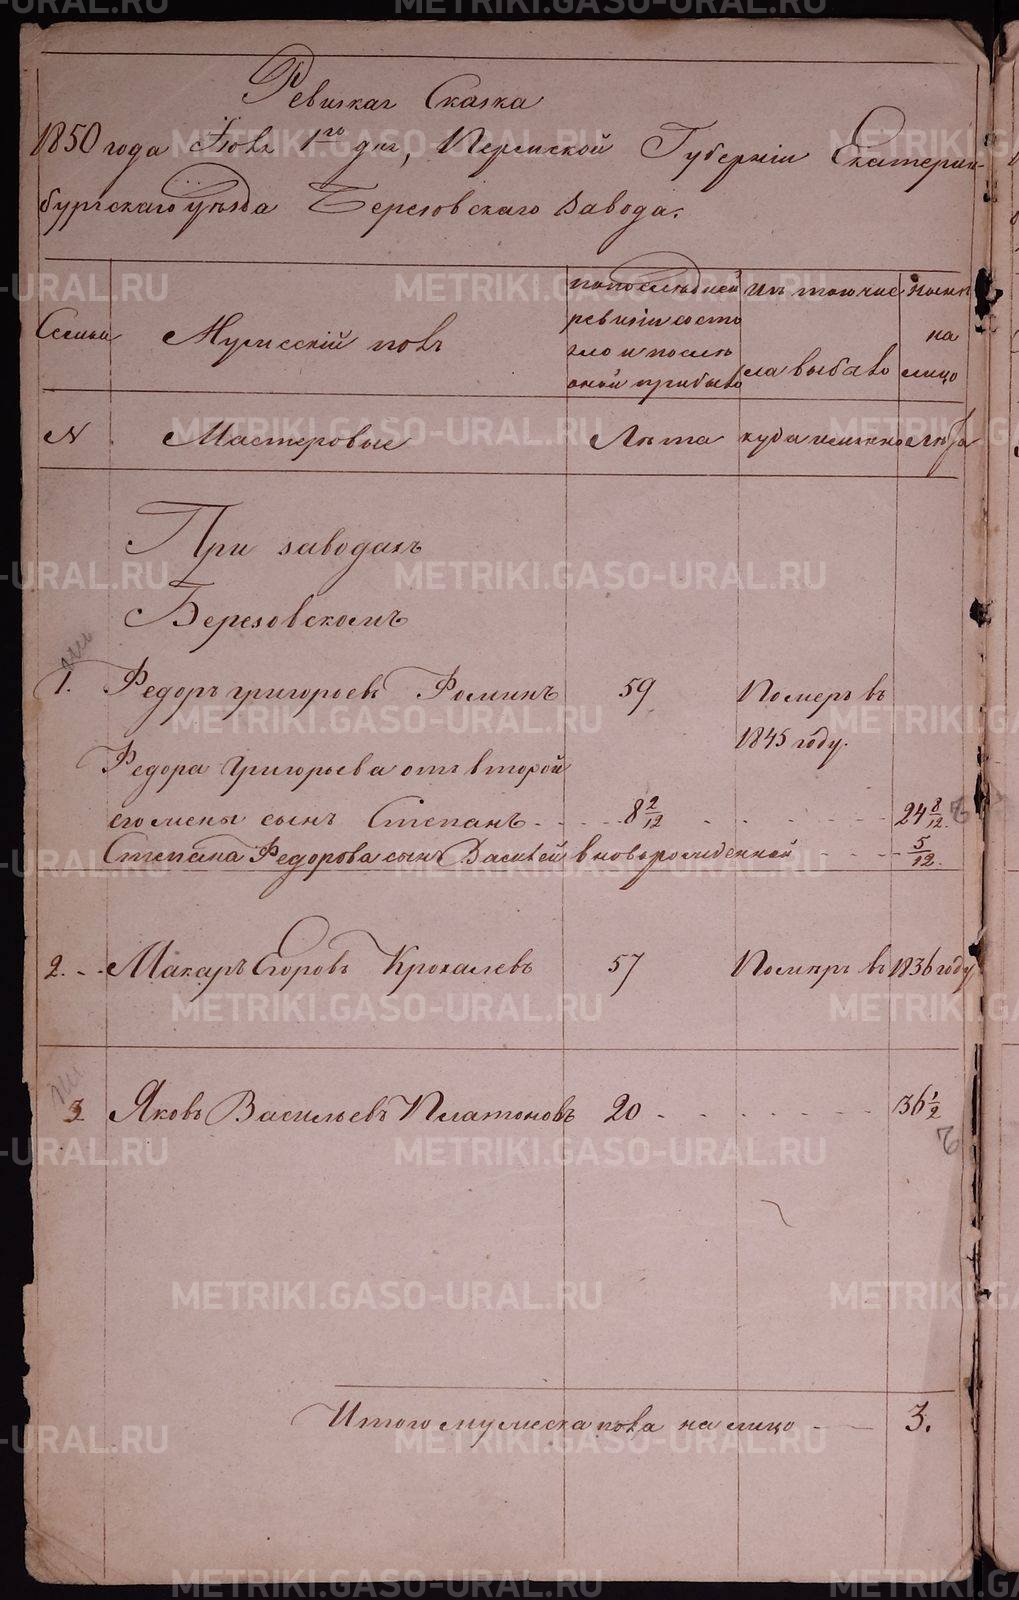 Ревизкая Сказка
1850 года Июля 1го дня, Пермской Губерніи Екатерин-
бургскаго уѣзда Березовскаго завода.
Семьи
Мужескій полъ
по последней
ревизіи состо
яло и послѣ
оной прибыло
Изъ того чис
ла выбыло
Нынѣ
на
лицо
N Мастеровые Лѣта куда именно лѣта
При заводахъ
Березовскомъ
1. Федоръ Григорьевъ Фоминъ 59 Померъ въ
1845 году.
Федора Григорьева отъ второй
его жены сынъ Степанъ 8 2/12 24 8/12
Степана Федорова сынъ Василей вновьрожденной 5/12.
2. Макаръ Егоровъ Крохалевъ 57 Померъ въ 1836 году
3 Яковъ Васильевъ Платоновъ 20 36 1/2
Итого мужеска пола на лицо 3.
METRIKI.GASO-URAL.RU